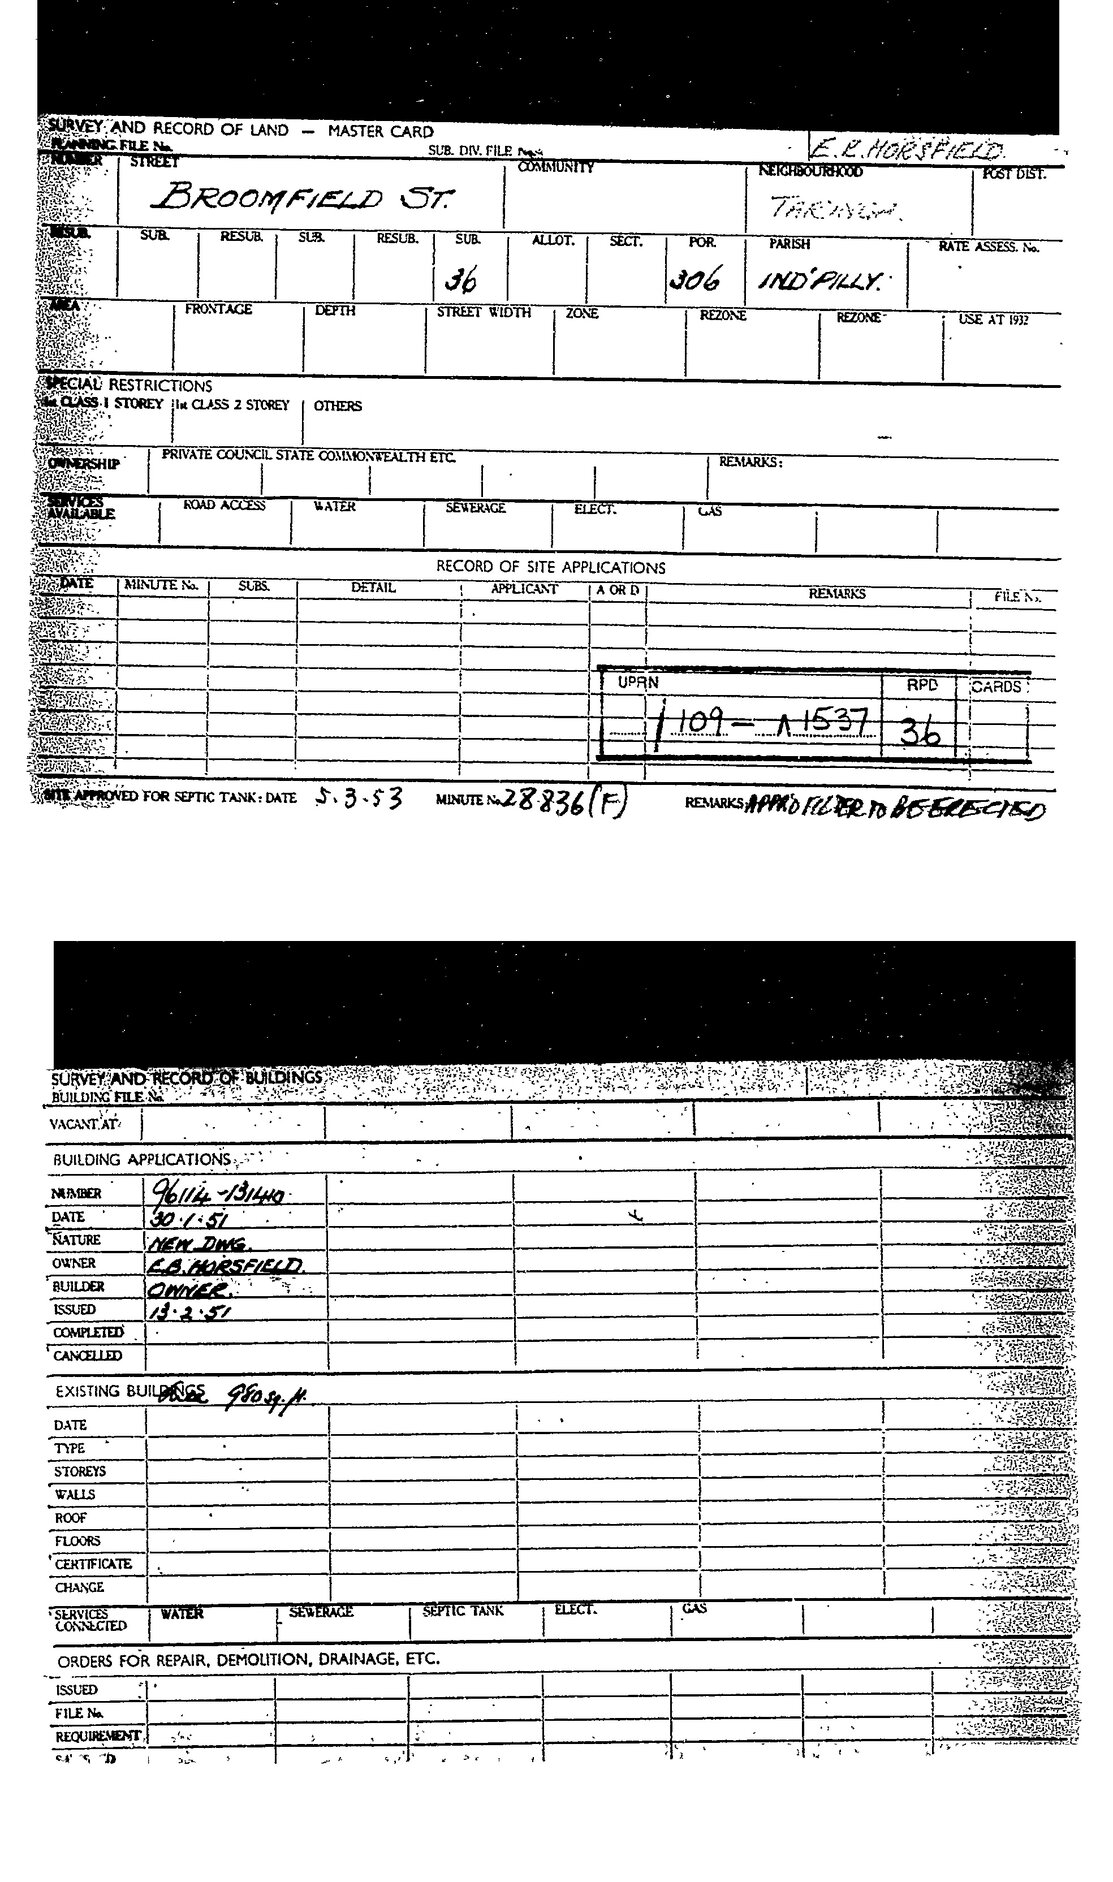 SURVEY AND RECORD OF LAND — MASTER CARD
PLANNING FILE No. SUB. DIV. FILE No. E.R. HORSFIELD.
NUMBER STREET COMMUNITY NEIGHBOURHOOD POST DIST.
BROOMFIELD ST. TARINGA.
RESUB. SUB. RESUB. SUB. RESUB. SUB. ALLOT. SECT. POR. PARISH RATE ASSESS. No.
36 306 IND'PILLY.
AREA FRONTAGE DEPTH STREET WIDTH ZONE REZONE REZONE USE AT 1932
SPECIAL RESTRICTIONS
1st CLASS 1 STOREY 1st CLASS 2 STOREY OTHERS
OWNERSHIP PRIVATE COUNCIL STATE COMMONWEALTH ETC. REMARKS:
SERVICES AVAILABLE ROAD ACCESS WATER SEWERAGE ELECT. GAS
RECORD OF SITE APPLICATIONS
DATE MINUTE No. SUBS. DETAIL APPLICANT A OR D REMARKS FILE No.
UPRN RPD CARDS
109 — 1537 36
SITE APPROVED FOR SEPTIC TANK: DATE 5.3.53 MINUTE No. 28836(F) REMARKS: APPR'D FILTER TO BE ERECTED
SURVEY AND RECORD OF BUILDINGS
BUILDING FILE No.
VACANT AT
BUILDING APPLICATIONS
NUMBER 96114-131440
DATE 30.1.51
NATURE NEW DWG.
OWNER E.B. HORSFIELD.
BUILDER OWNER.
ISSUED 13.2.51
COMPLETED
CANCELLED
EXISTING BUILDINGS 980 sq. ft.
DATE
TYPE
STOREYS
WALLS
ROOF
FLOORS
CERTIFICATE
CHANGE
SERVICES CONNECTED WATER SEWERAGE SEPTIC TANK ELECT. GAS
ORDERS FOR REPAIR, DEMOLITION, DRAINAGE, ETC.
ISSUED
FILE No.
REQUIREMENT